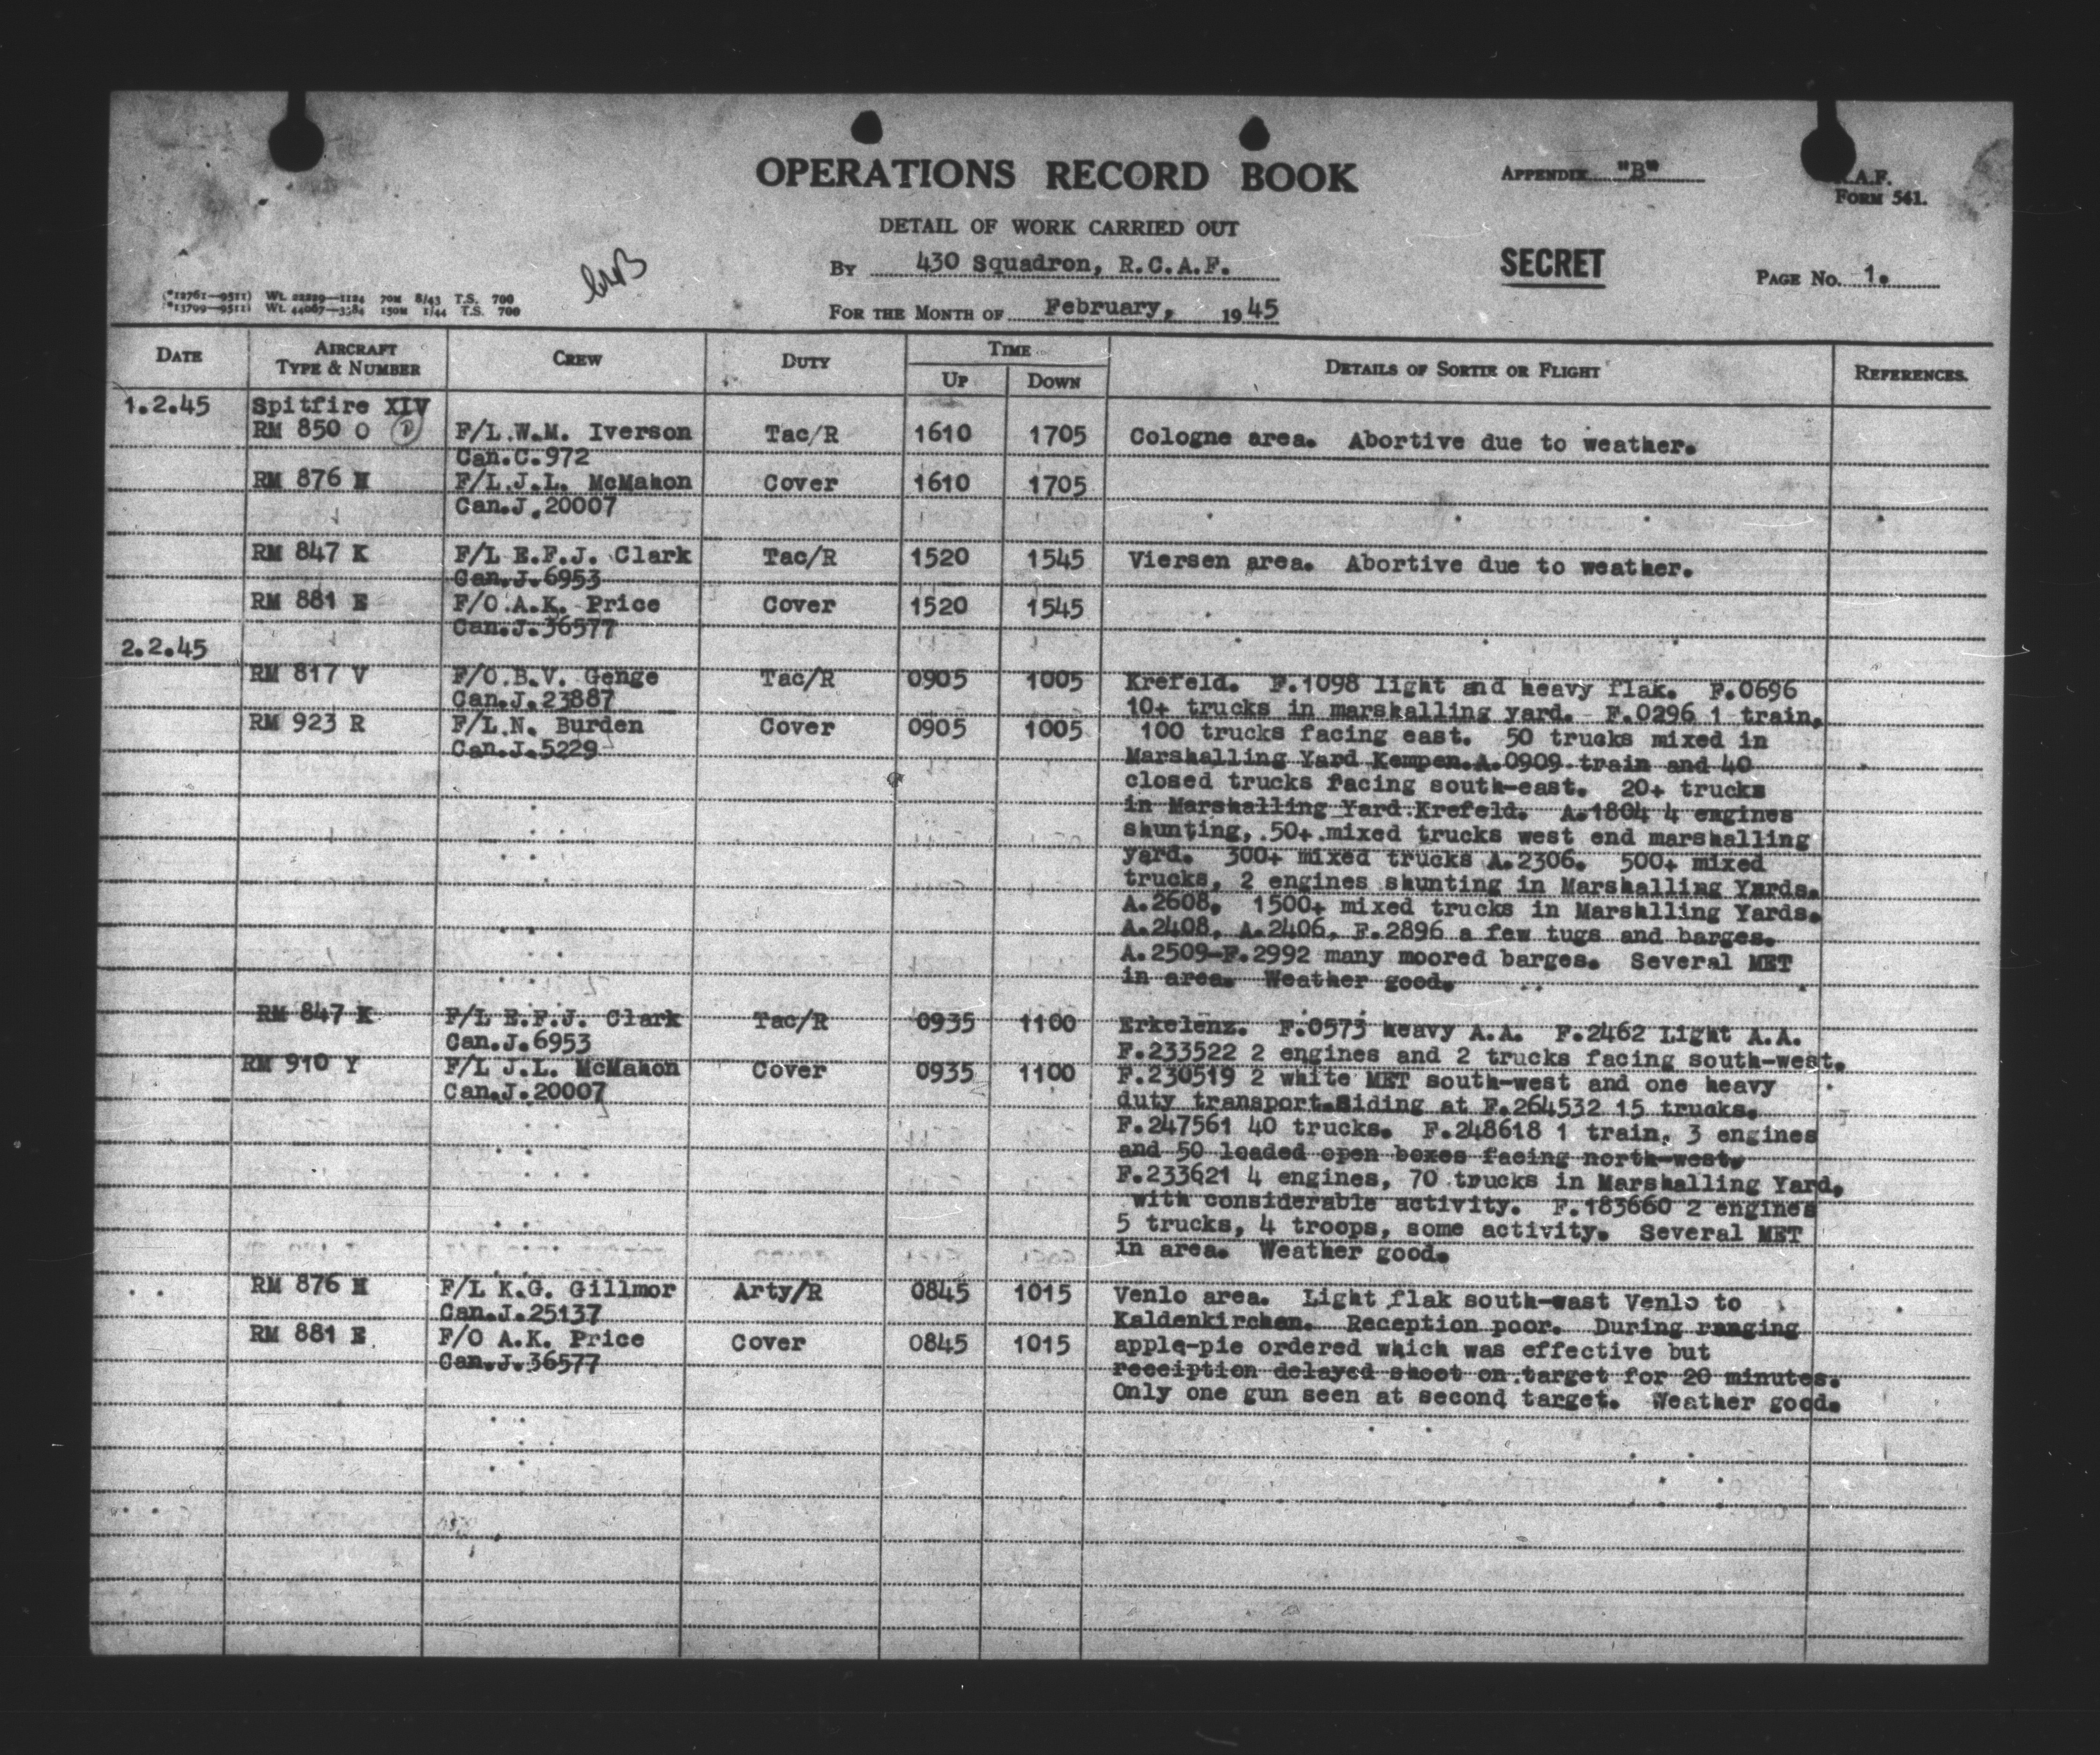 OPERATIONS RECORD BOOK
APPENDIX "B"
R.A.F.
FORM 541.
DETAIL OF WORK CARRIED OUT
BY 430 Squadron, R.C.A.F.
SECRET
PAGE No. 1.
FOR THE MONTH OF February, 1945
(*12761—9511) Wt. 22229—1124 70M 8/43 T.S. 700
(*13799—9511) Wt. 44067—3584 150M 1/44 T.S. 700
DATE AIRCRAFT TYPE & NUMBER CREW DUTY TIME UP DOWN DETAILS OF SORTIE OR FLIGHT REFERENCES.
1.2.45 Spitfire XIV
RM 850 O D F/L.W.M. Iverson Tac/R 1610 1705 Cologne area. Abortive due to weather.
Can.C.972
RM 876 H F/L.J.L. McMahon Cover 1610 1705
Can.J.20007
RM 847 K F/L E.F.J. Clark Tac/R 1520 1545 Viersen area. Abortive due to weather.
Can.J.6953
RM 881 E F/O A.K. Price Cover 1520 1545
Can.J.36577
2.2.45
RM 817 V F/O.B.V. Genge Tac/R 0905 1005 Krefeld. F.1098 light and heavy flak. F.0696
Can.J.23887 10+ trucks in marshalling yard. F.0296 1 train,
RM 923 R F/L.N. Burden Cover 0905 1005 100 trucks facing east. 50 trucks mixed in
Can.J.5229 Marshalling Yard Kempen.A.0909 train and 40
closed trucks facing south-east. 20+ trucks
in Marshalling Yard Krefeld. A.1804 4 engines
shunting, 50+ mixed trucks west end marshalling
yard. 300+ mixed trucks A.2306. 500+ mixed
trucks, 2 engines shunting in Marshalling Yards.
A.2608. 1500+ mixed trucks in Marshlling Yards.
A.2408, A.2406, F.2896 a few tugs and barges.
A.2509-F.2992 many moored barges. Several MET
in area. Weather good.
RM 847 K F/L E.F.J. Clark Tac/R 0935 1100 Erkelenz. F.0573 heavy A.A. F.2462 Light A.A.
Can.J.6953 F.233522 2 engines and 2 trucks facing south-west.
RM 910 Y F/L J.L. McMahon Cover 0935 1100 F.230519 2 white MET south-west and one heavy
Can.J.20007 duty transport.Siding at F.264532 15 trucks.
F.247561 40 trucks. F.248618 1 train, 3 engines
and 50 loaded open boxes facing north-west.
F.233621 4 engines, 70 trucks in Marshalling Yard,
with considerable activity. F.183660 2 engines
5 trucks, 4 troops, some activity. Several MET
in area. Weather good.
RM 876 H F/L K.G. Gillmor Arty/R 0845 1015 Venlo area. Light flak south-east Venlo to
Can.J.25137 Kaldenkirchen. Reception poor. During ranging
RM 881 E F/O A.K. Price Cover 0845 1015 apple-pie ordered which was effective but
Can.J.36577 receiption delayed shoot on target for 20 minutes.
Only one gun seen at second target. Weather good.